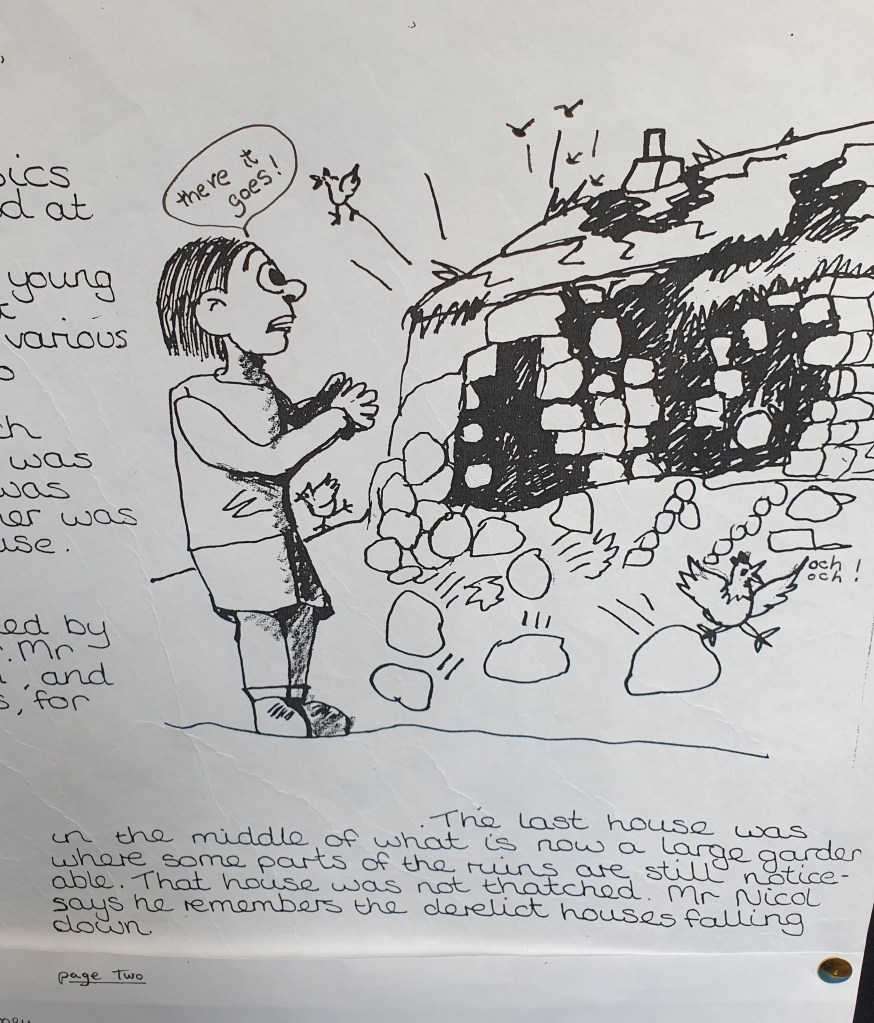 d at
young
various
was
was
her was
use.
ed by
. Mr
, and
s, for
there it
goes!
och
och!
The last house was
in the middle of what is now a large garden
where some parts of the ruins are still notice-
able. That house was not thatched. Mr Nicol
says he remembers the derelict houses falling
down.
page two